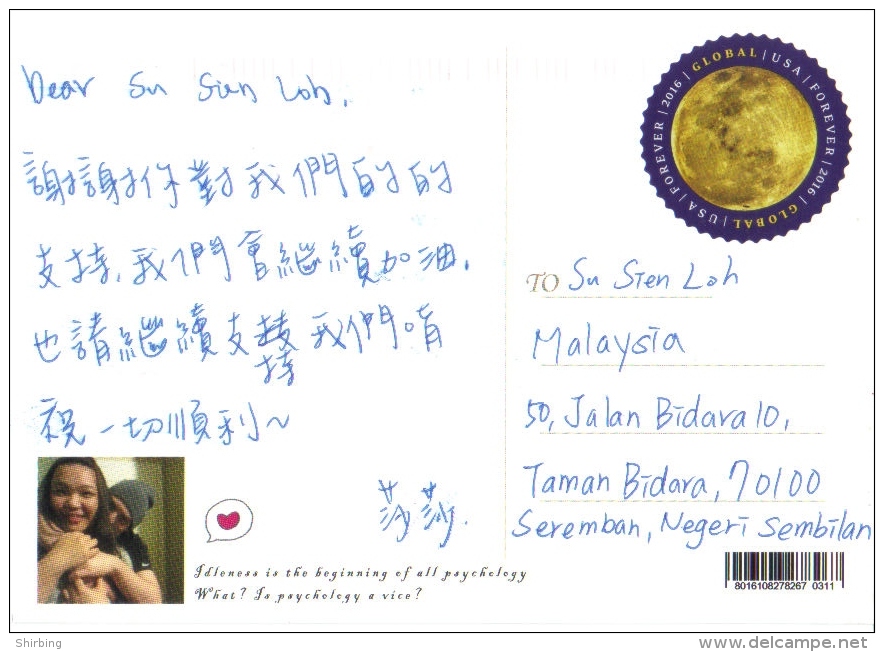 Dear Su Sien Loh,
謝謝你對我們的的
支持,我們會繼續加油.
也請繼續支接我們唷
持
祝一切順利~
莎莎.
Idleness is the beginning of all psychology
What? Is psychology a vice?
GLOBAL | USA | FOREVER | 2016 | GLOBAL | USA | FOREVER | 2016 |
TO Su Sien Loh
Malaysia
50, Jalan Bidara 10,
Taman Bidara, 70100
Seremban, Negeri Sembilan
8016108278267 0311
Shirbing
www.delcampe.net